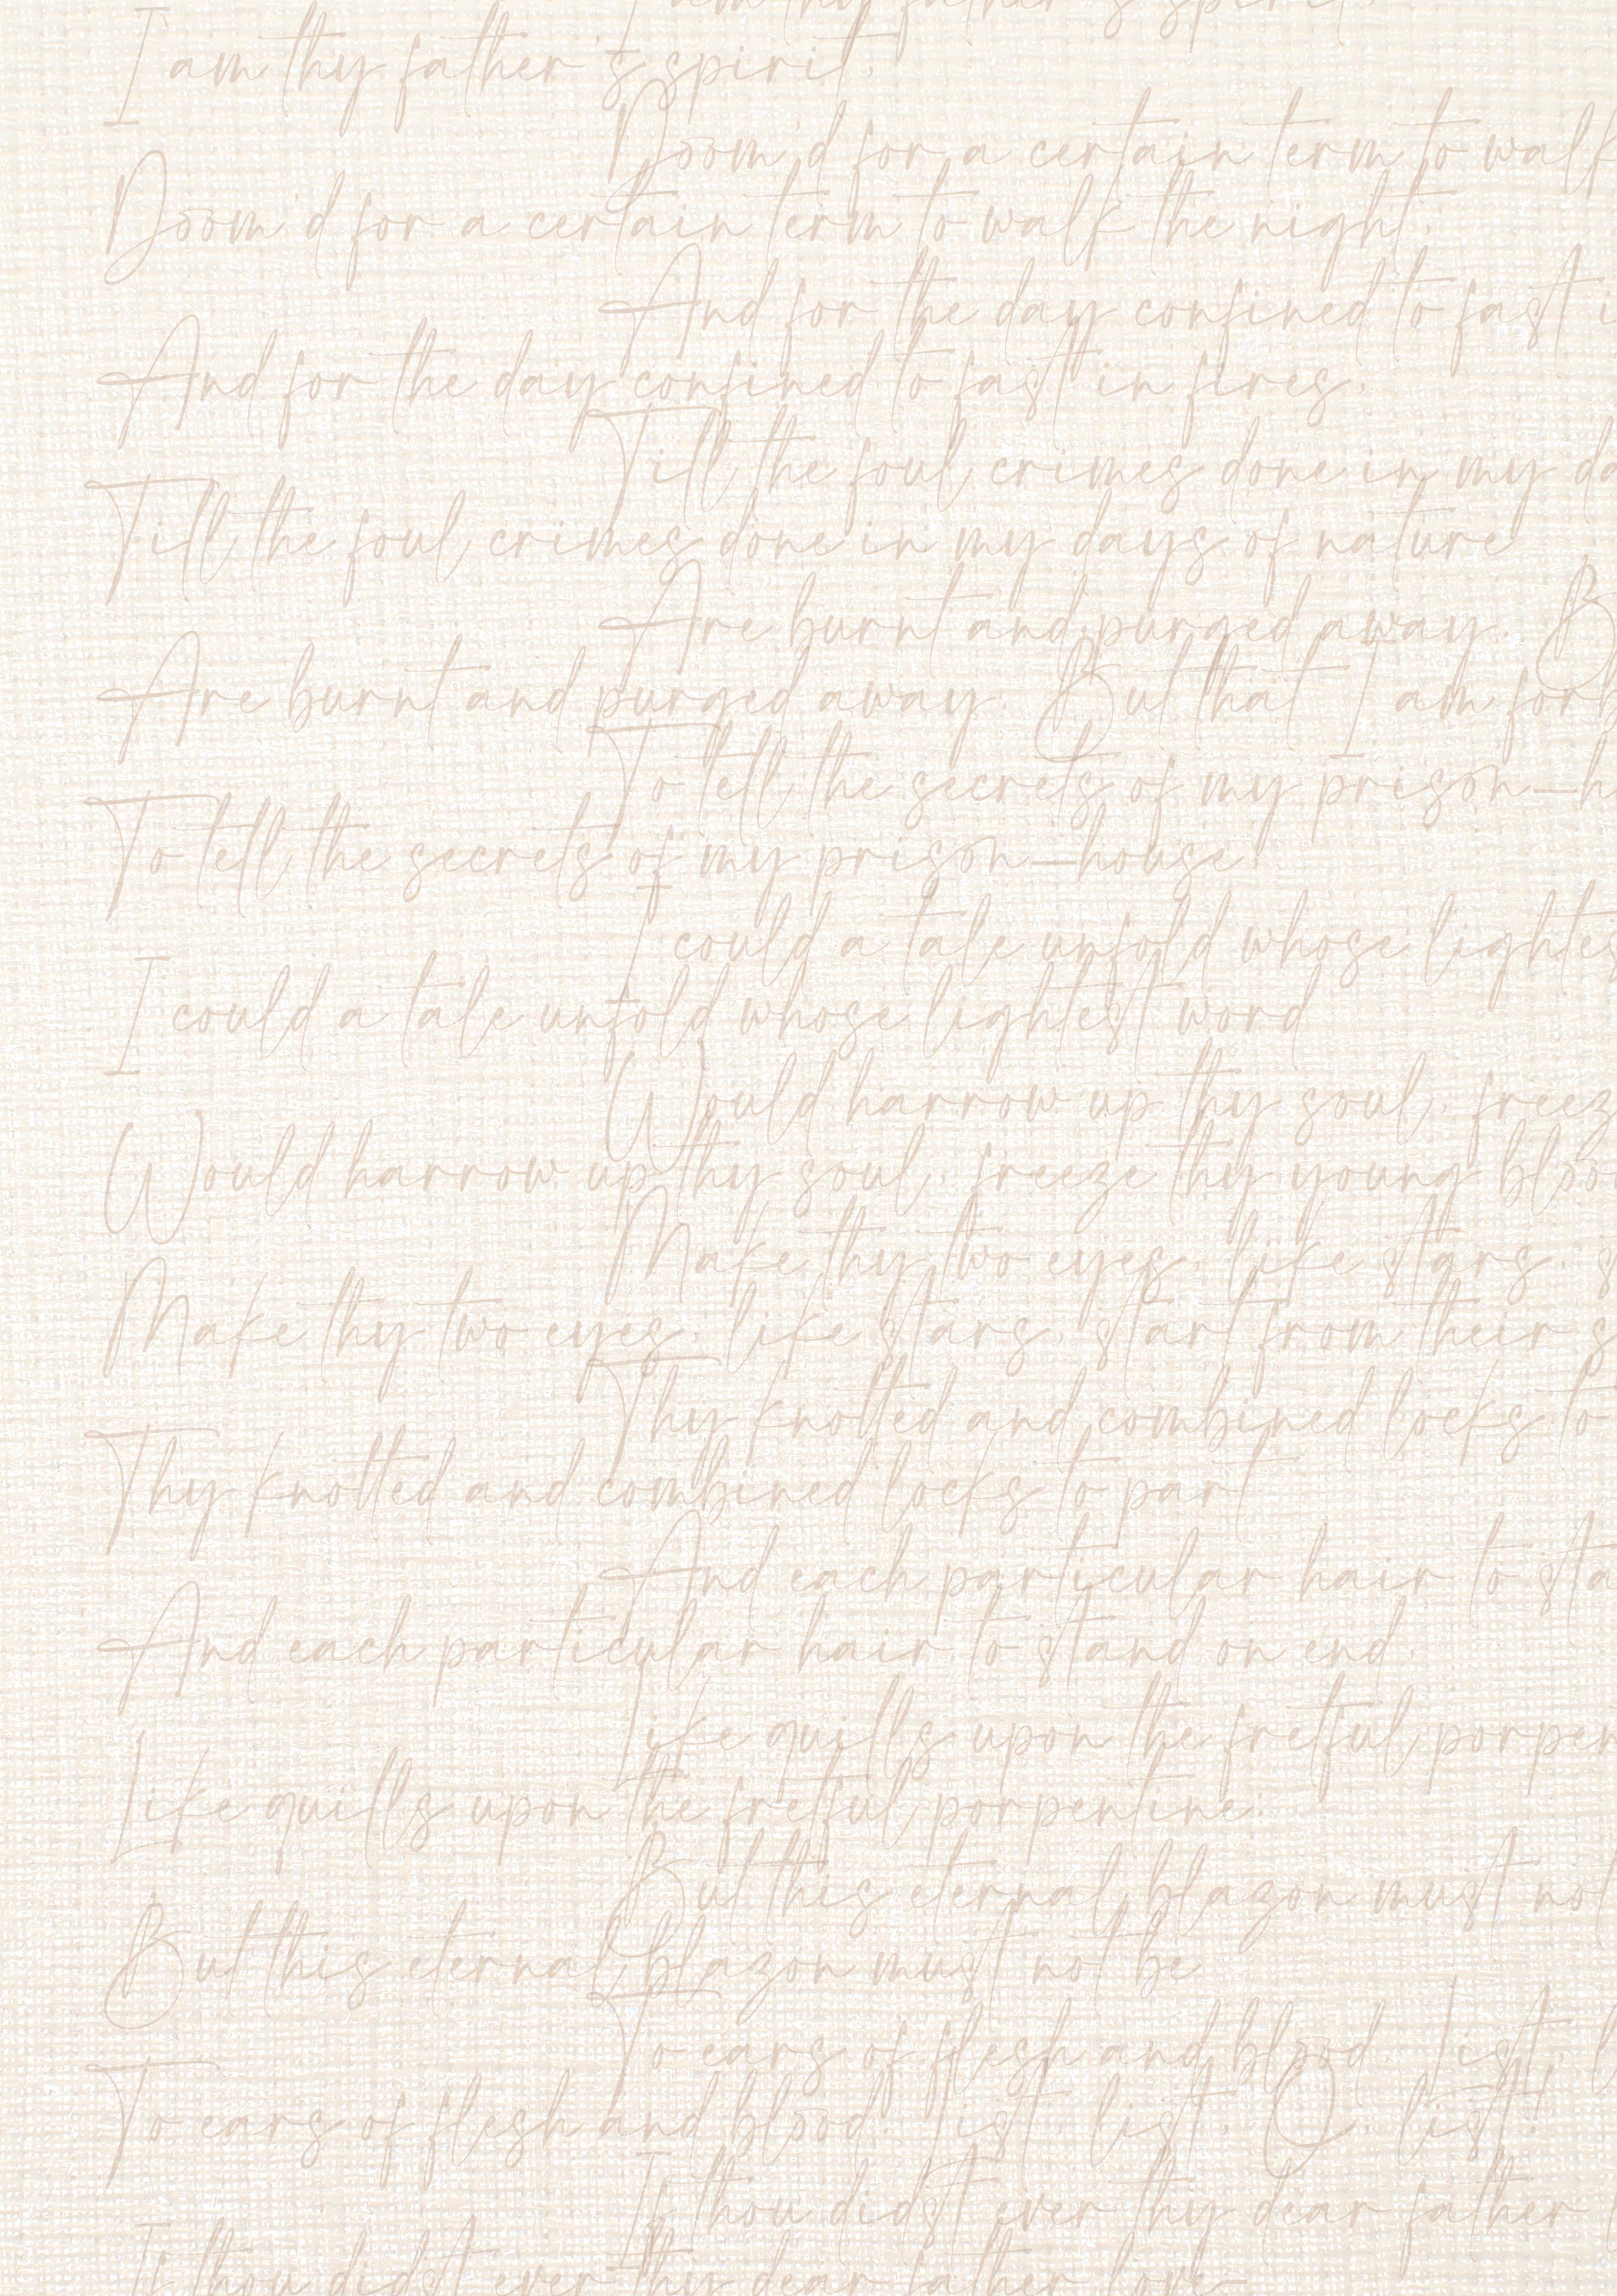 I am thy father's spirit,
I am thy father's spirit,
Doom'd for a certain term to walk
Doom'd for a certain term to walk the night,
And for the day confined to fast i
And for the day confined to fast in fires,
Till the foul crimes done in my da
Till the foul crimes done in my days of nature
Are burnt and purged away. B
Are burnt and purged away. But that I am forb
To tell the secrets of my prison-h
To tell the secrets of my prison-house,
I could a tale unfold whose lightes
I could a tale unfold whose lightest word
Would harrow up thy soul, freez
Would harrow up thy soul, freeze thy young bloo
Make thy two eyes, like stars, s
Make thy two eyes, like stars, start from their s
Thy knotted and combined locks to
Thy knotted and combined locks to part
And each particular hair to sta
And each particular hair to stand on end,
Like quills upon the fretful porpen
Like quills upon the fretful porpentine:
But this eternal blazon must not
But this eternal blazon must not be
To ears of flesh and blood. List, l
To ears of flesh and blood. List, list, O, list!
If thou didst ever thy dear father
If thou didst ever thy dear father love